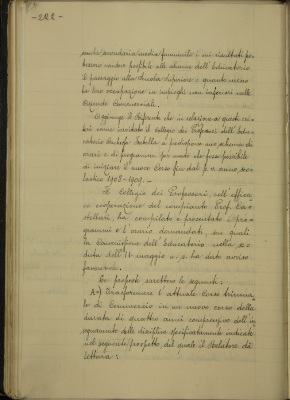 - 242 -
scuola secondaria media femminile i cui risultati po-
tessero rendere possibile alle alunne dell'Educatorio
il passaggio alla Scuola Superiore o quanto meno
la loro occupazione in impieghi non inferiori nelle
Aziende Commerciali.
Aggiunge il Riferente che in relazione a questi cri-
teri venne invitato il Collegio dei Professori dell'Edu-
catorio a predisporre uno schema di
orari e di programmi per modo che fosse possibile
di iniziare il nuovo Corso fin dal p. v. anno sco-
lastico 1908-1909.-
Il Collegio dei Professori, coll'efficace
cooperazione del compianto Prof. Ca-
stellari, ha compilato e presentato i pro-
grammi e l'orario domandati, sui quali
la Commissione dell'Educatorio nella se-
duta dell' 11 maggio u. s. ha dato avviso
favorevole.
Le proposte sarebbero le seguenti:
A-) Trasformare l'attuale Corso biennale
di Commercio in un nuovo corso della
durata di quattro anni comprensivo dell'in-
segnamento delle discipline specificatamente indicate
nel seguente prospetto, del quale il Relatore dà
lettura: